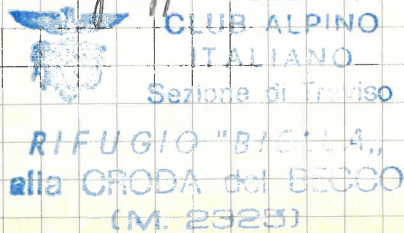 CLUB ALPINO
ITALIANO
Sezione di Treviso
RIFUGIO "BIELLA„
alla CRODA del BECCO
(M. 2325)